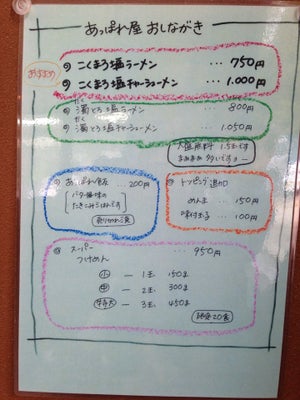 あっぱれ屋 おしながき
おすすめ
◎ こくまろ塩ラーメン … 750円
◎ こくまろ塩チャーシューメン … 1.000円
だく
◎ 濁とろ塩ラーメン … 800円
だく
◎ 濁とろ塩チャーシューメン … 1.050円
大盛無料 1.5玉です
まあまあ多いですョ
◎ あっぱれ飯 … 200円
バター風味の
たきこみごはんです
◎ トッピング追加
めんま … 150円
味付玉子 … 100円
◎ スーパーつけめん … 950円
小 — 1玉 150g
中 — 2玉 300g
特大 — 3玉 450g
限定20食